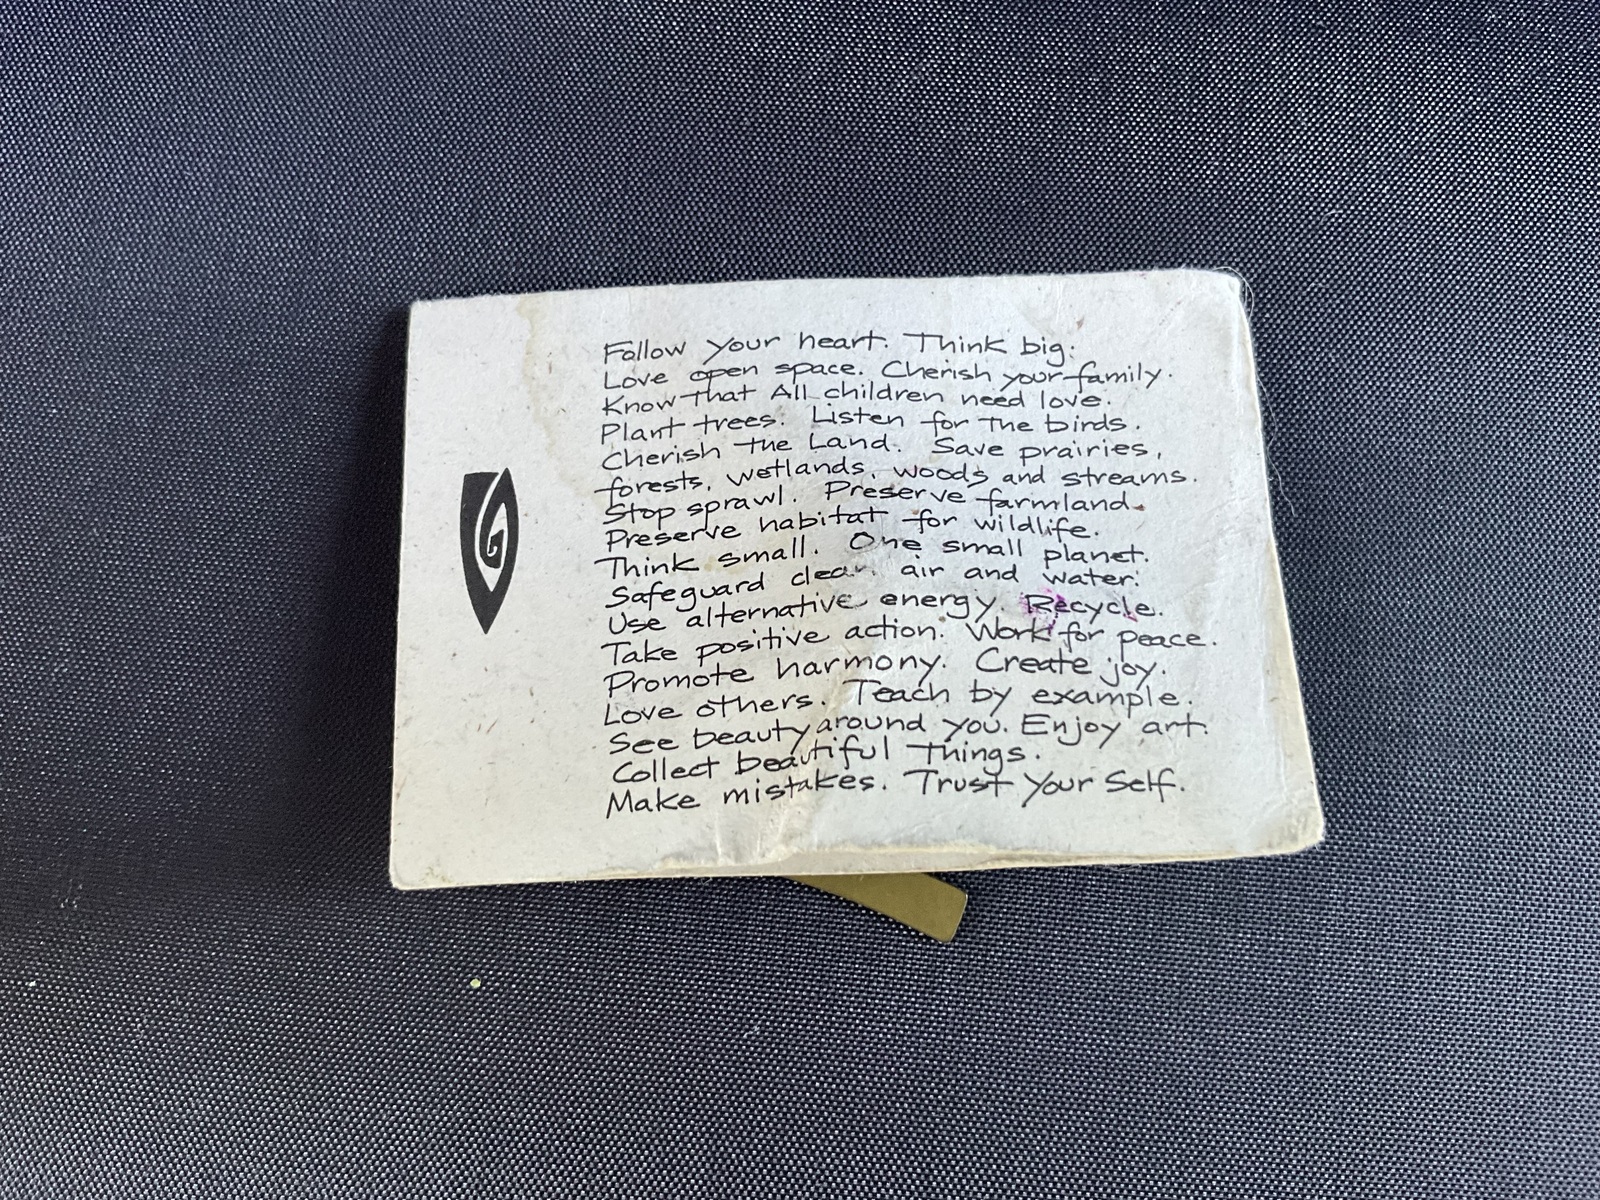 G
Follow your heart. Think big.
Love open space. Cherish your family.
Know that All children need love.
Plant trees. Listen for the birds.
Cherish the Land. Save prairies,
forests, wetlands, woods and streams.
Stop sprawl. Preserve farmland.
Preserve habitat for wildlife.
Think small. One small planet.
Safeguard clean air and water.
Use alternative energy. Recycle.
Take positive action. Work for peace.
Promote harmony. Create joy.
Love others. Teach by example.
See beauty around you. Enjoy art.
Collect beautiful things.
Make mistakes. Trust Your Self.